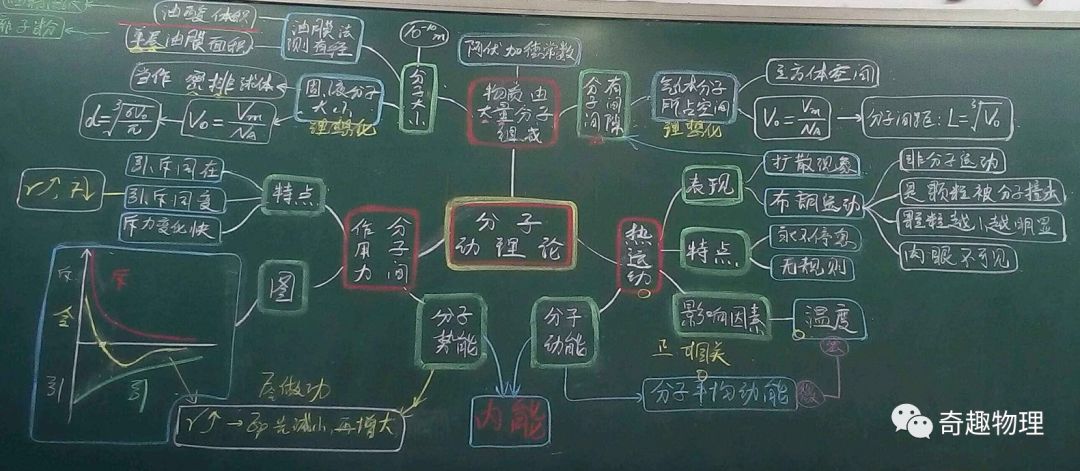 油酸体积
单层油膜面积
油膜法
测直径
10⁻¹⁰m
分子大小
当作 密排球体
固、液分子
大小
理想化
d=∛(6V₀/π)
V₀=Vm/NA
阿伏加德常数
物质由
大量分子
组成
分子有间隙
气体分子
所占空间
理想化
立方体空间
V₀=Vm/NA
分子间距:L=∛V₀
分子
动理论
引、斥同在
引、斥同变
斥力变化快
r↑,F↓
特点
分子间
作用力
图
斥
斥
合
引
引
分子
势能
r↑→Ep先减小,再增大
内能
分子
动能
热运动
表现
扩散现象
布朗运动
非分子运动
是颗粒被分子撞击
颗粒越小越明显
肉眼不可见
特点
永不停息
无规则
影响因素
温度
宏
正相关
分子平均动能
微
奇趣物理